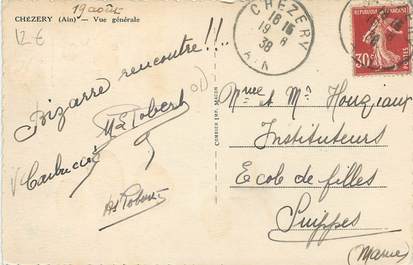 19 août
CHEZERY (Ain) — Vue générale
12 €
Bizarre rencontre !!..
CHEZERY
18 15
19 - 8
38
AIN
30
COMBIER IMP. MACON
Mme et Mr Houziaux
Instituteurs
Ecole de filles
Suippes
(Marne)